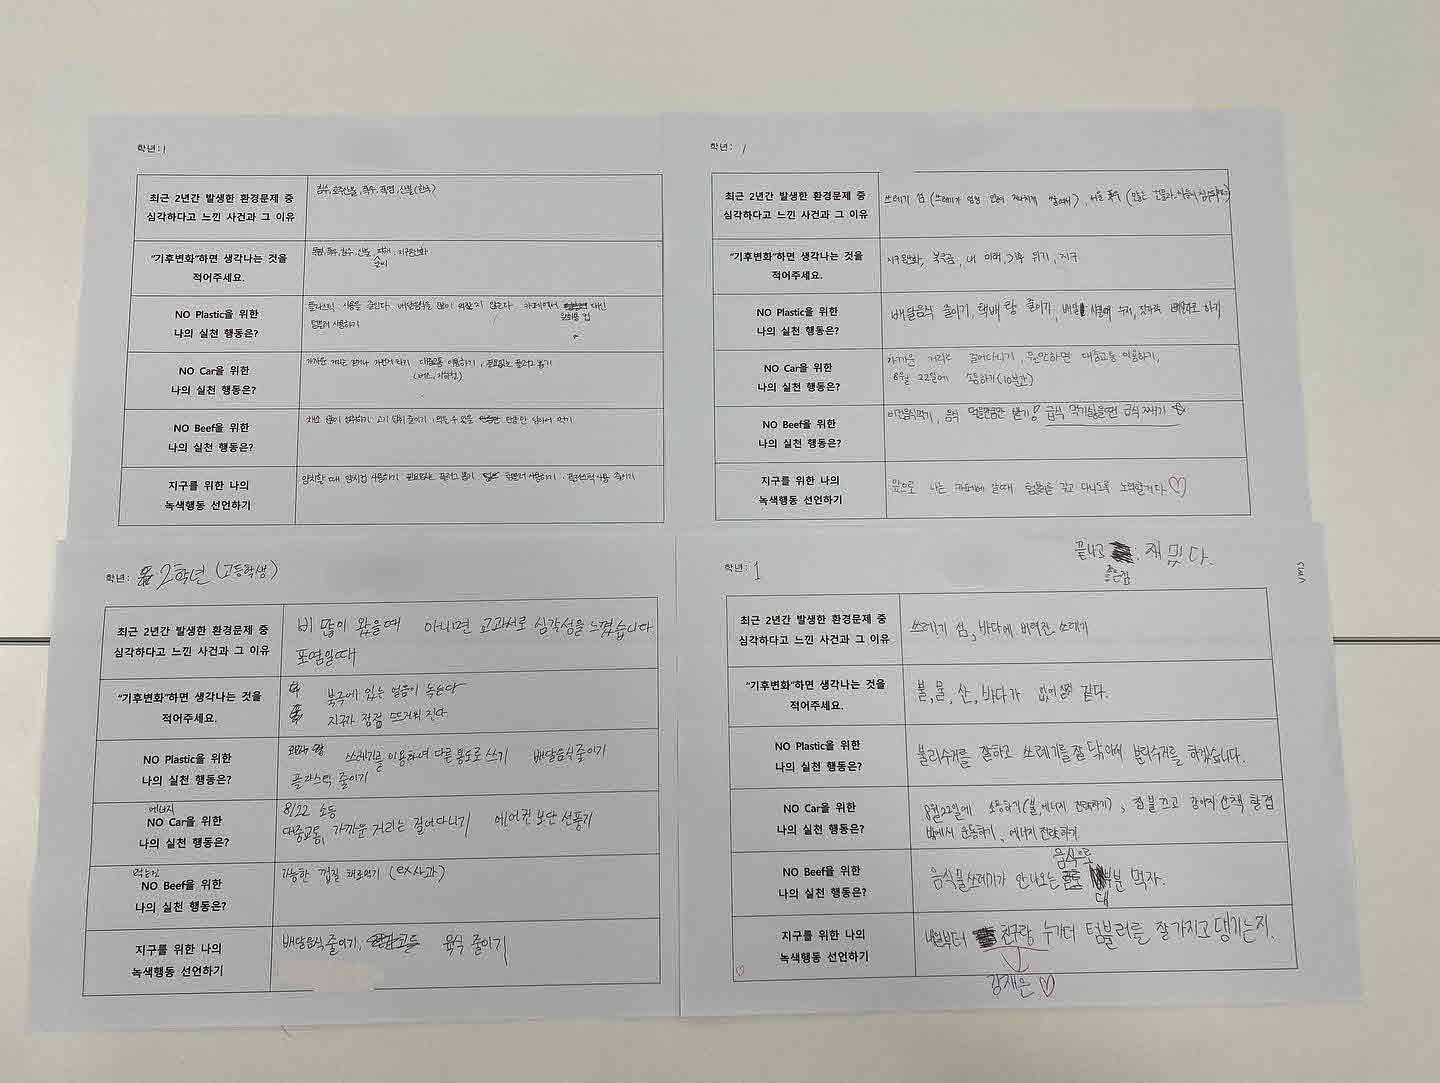 학년: 1
최근 2년간 발생한 환경문제 중
심각하다고 느낀 사건과 그 이유
호주산불, 폭우, 폭염, 산불(한국)
"기후변화"하면 생각나는 것을
적어주세요.
폭염, 폭우, 홍수, 산불, 지구온난화
NO Plastic을 위한
나의 실천 행동은?
플라스틱 사용을 줄인다 배달음식을 많이 먹지 않는다 카페에서 대신
텀블러 사용하기
NO Car을 위한
나의 실천 행동은?
가까운 거리는 대중교통 이용하기, 필요없는 플러그 뽑기
(버스, 지하철)
NO Beef을 위한
나의 실천 행동은?
채소 많이 섭취하기 고기 섭취 줄이기, 먹을 수 있을 만큼만 덜어서 먹기
지구를 위한 나의
녹색행동 선언하기
양치할 때 양치컵 사용하기 필요없는 플러그 뽑기 텀블러 사용하기 플라스틱 사용 줄이기
학년: 1
최근 2년간 발생한 환경문제 중
심각하다고 느낀 사건과 그 이유
쓰레기 섬 (쓰레기가 엄청 서울 폭우
"기후변화"하면 생각나는 것을
적어주세요.
지구온난화, 북극곰, 내 미래, 기후 위기, 지구
NO Plastic을 위한
나의 실천 행동은?
배달음식 줄이기, 택배 량 줄이기,
NO Car을 위한
나의 실천 행동은?
가까운 거리는 걸어다니기, 웬만하면 대중교통 이용하기,
8월 22일에 소등하기 (10분간)
NO Beef을 위한
나의 실천 행동은?
비건음식먹기, 음식 먹을만큼만 받기! 급식
지구를 위한 나의
녹색행동 선언하기
앞으로 나는 카페에 갈때 텀블러를 갖고 다니도록 노력할거다. ♡
학년: 2학년 (고등학생)
최근 2년간 발생한 환경문제 중
심각하다고 느낀 사건과 그 이유
비 많이 왔을때 아니면 교과서로 심각성을 느꼈습니다
폭염일때
"기후변화"하면 생각나는 것을
적어주세요.
북극에 있는 얼음이 녹는다
지구가 점점 뜨거워 진다
NO Plastic을 위한
나의 실천 행동은?
쓰레기를 이용하여 다른 용도로 쓰기 배달음식 줄이기
플라스틱 줄이기
에너지
NO Car을 위한
나의 실천 행동은?
8/22 소등
대중교통, 가까운 거리는 걸어다니기 에어컨 보단 선풍기
먹는것
NO Beef을 위한
나의 실천 행동은?
가능한 껍질 채로먹기 (ex 사과)
지구를 위한 나의
녹색행동 선언하기
배달음식 줄이기, 육식 줄이기
끝나고 재밌다.
학년: 1
최근 2년간 발생한 환경문제 중
심각하다고 느낀 사건과 그 이유
쓰레기 섬, 바다에 버려진 쓰레기
"기후변화"하면 생각나는 것을
적어주세요.
불, 물, 산, 바다가 같다.
NO Plastic을 위한
나의 실천 행동은?
분리수거를 잘하고 쓰레기를 잘 닦아서 분리수거를 하겠습니다.
NO Car을 위한
나의 실천 행동은?
8월 22일에 소등하기 (불, 에너지 절약하기), 집불 끄고 강아지 산책 할겸
밖에서 운동하기, 에너지 절약하기
NO Beef을 위한
나의 실천 행동은?
음식으로
음식물 쓰레기가 안 나오는 먹자.
지구를 위한 나의
녹색행동 선언하기
친구랑 누가더 텀블러를 잘 가지고 댕기는지.
강채은 ♡